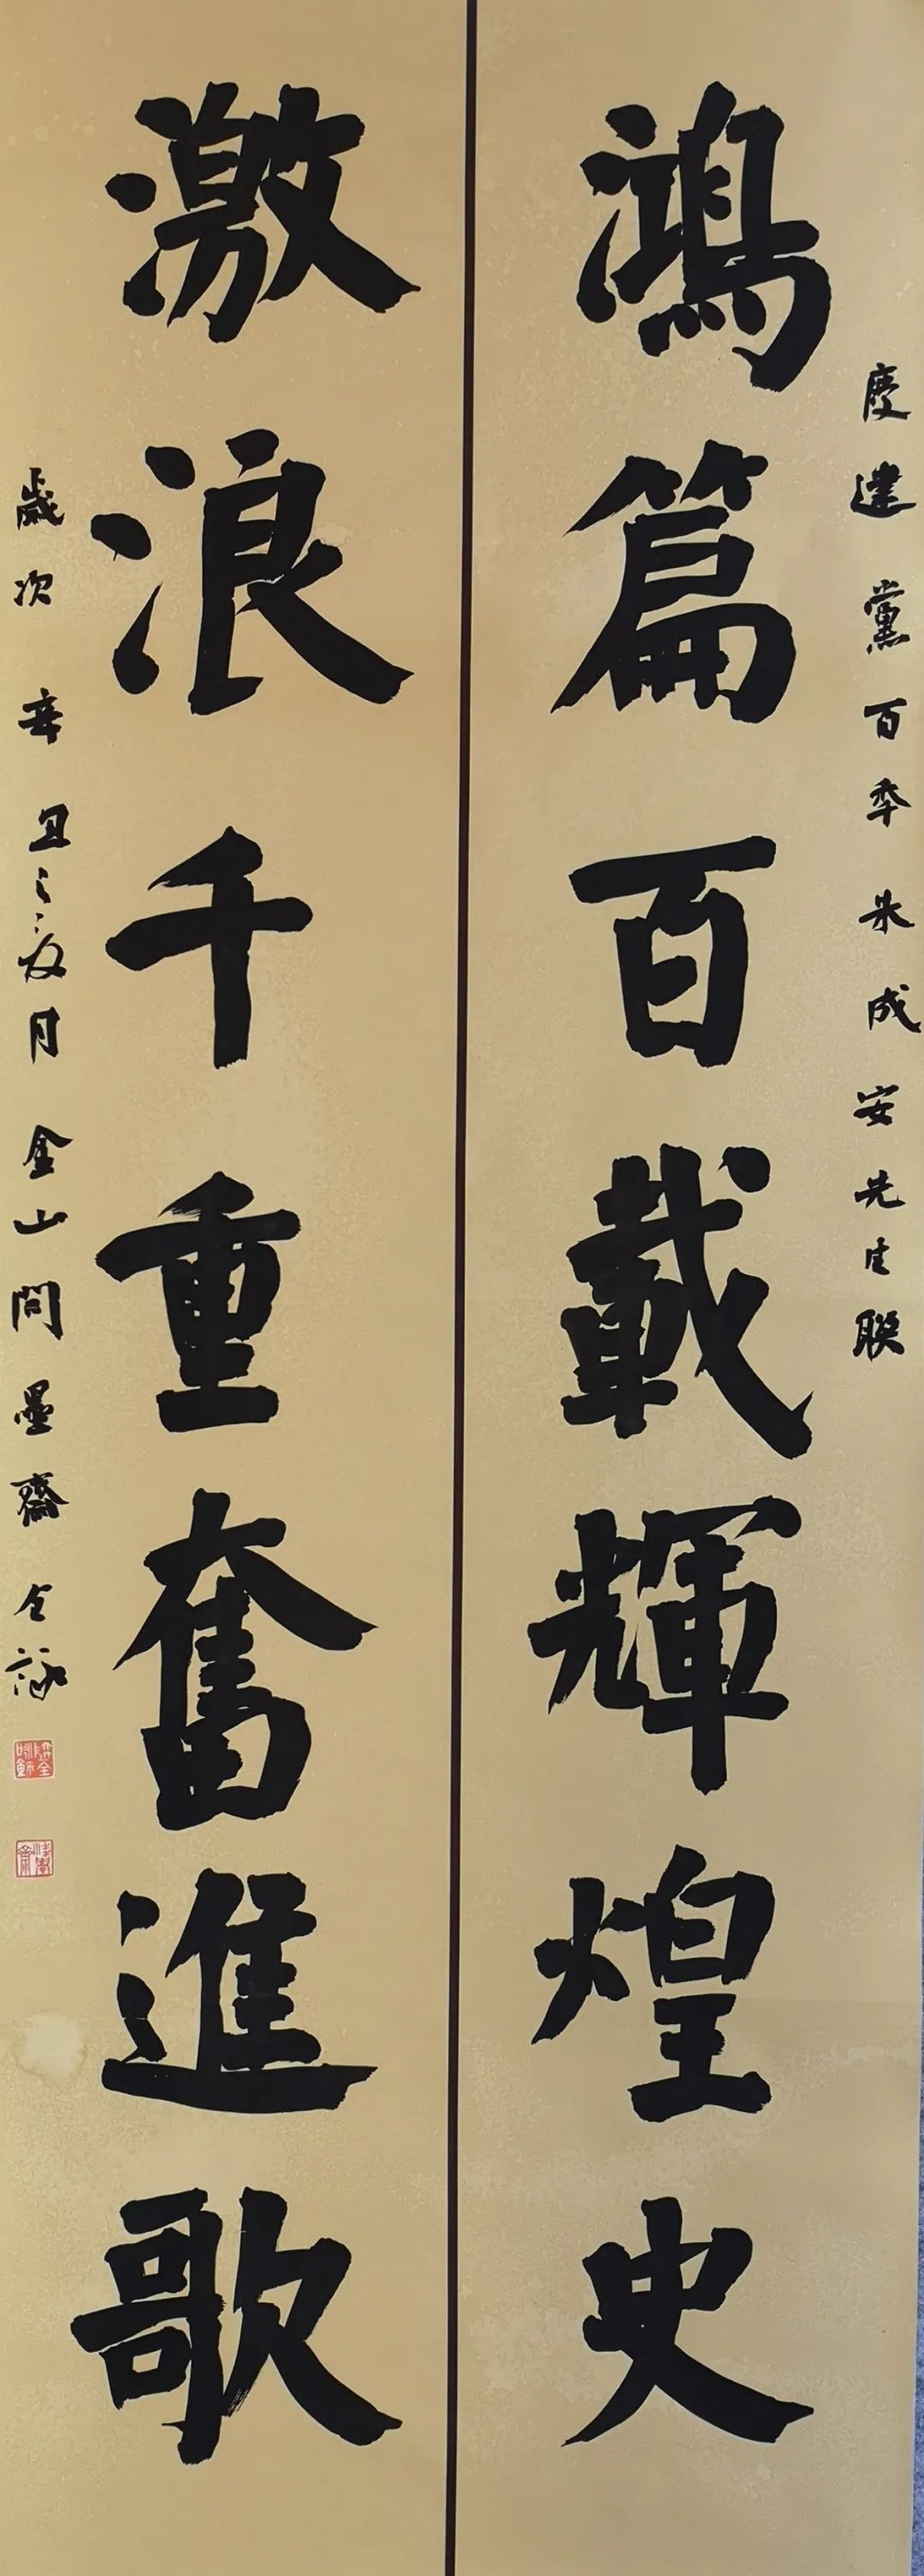 慶建黨百年朱成安先生聯
鴻篇百載輝煌史
激浪千重奮進歌
歲次辛丑之夏月金山問墨齋全詠